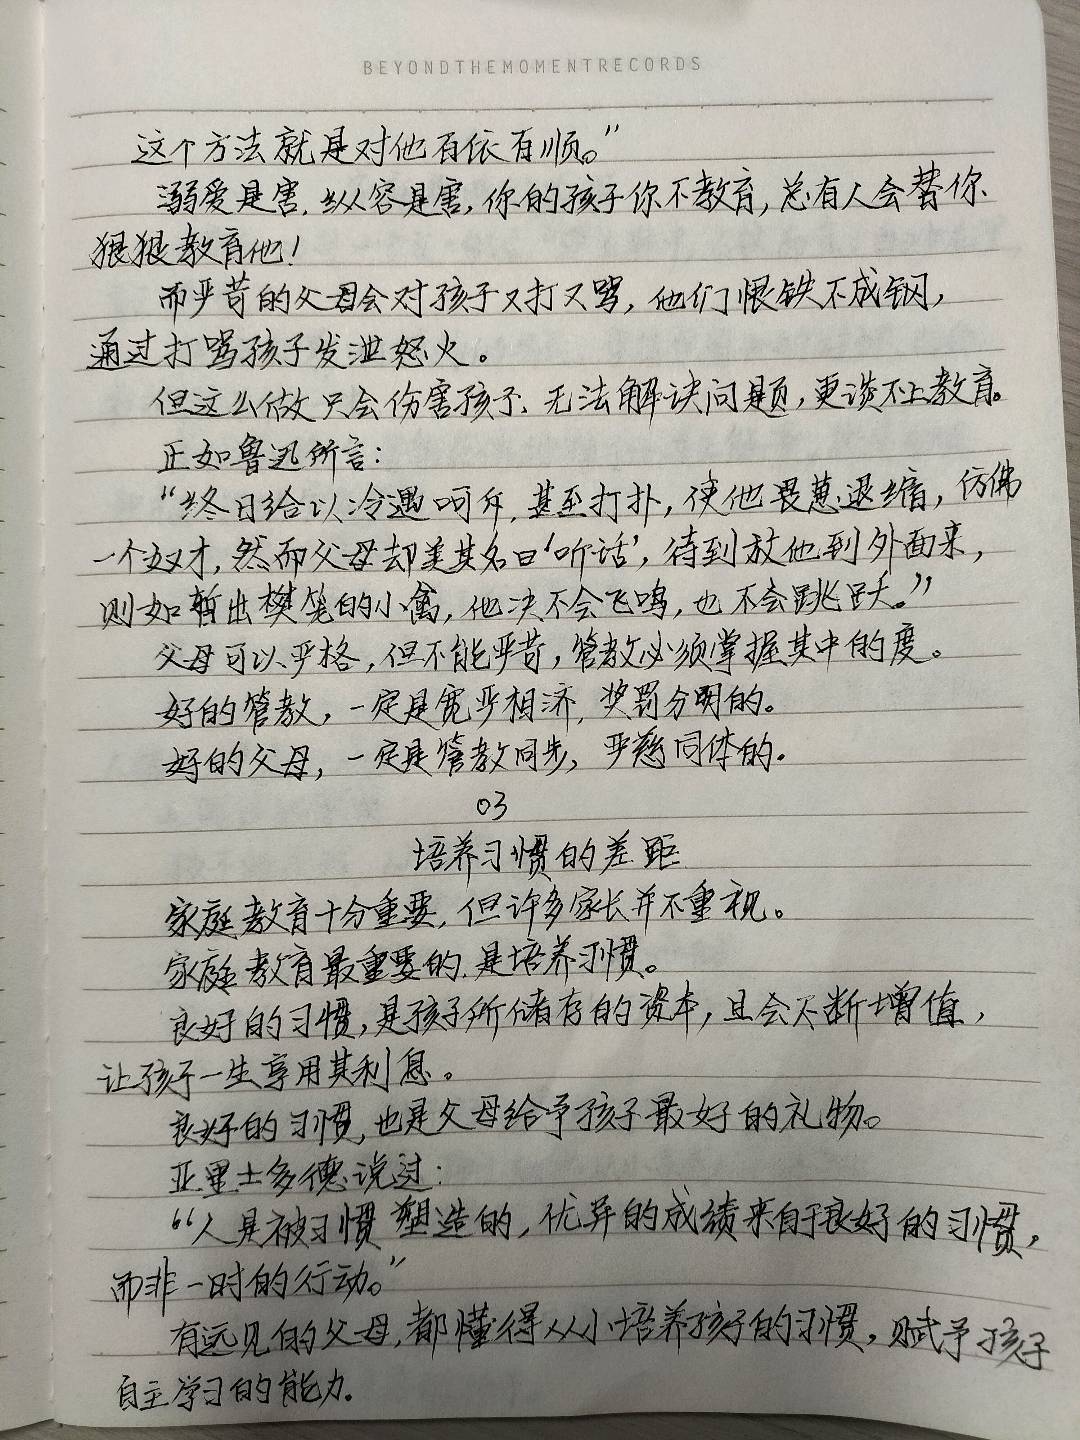 BEYONDTHEMOMENTRECORDS
这个方法就是对他百依百顺。”
溺爱是害,纵容是害,你的孩子你不教育,总有人会替你
狠狠教育他!
而严苛的父母会对孩子又打又骂,他们恨铁不成钢,
通过打骂孩子发泄怒火。
但这么做只会伤害孩子,无法解决问题,更谈不上教育。
正如鲁迅所言:
“终日给以冷遇呵斥,甚至打扑,使他畏葸退缩,仿佛
一个奴才,然而父母却美其名曰‘听话’,待到放他到外面来,
则如暂出樊笼的小禽,他决不会飞鸣,也不会跳跃。”
父母可以严格,但不能严苛,管教必须掌握其中的度。
好的管教,一定是宽严相济,奖罚分明的。
好的父母,一定是管教同步,严慈同体的.
03
培养习惯的差距
家庭教育十分重要,但许多家长并不重视。
家庭教育最重要的,是培养习惯。
良好的习惯,是孩子所储存的资本,且会不断增值,
让孩子一生享用其利息。
良好的习惯,也是父母给予孩子最好的礼物。
亚里士多德说过:
“人是被习惯塑造的,优异的成绩来自于良好的习惯,
而非一时的行动。”
有远见的父母,都懂得从小培养孩子的习惯,赋予孩子
自主学习的能力.